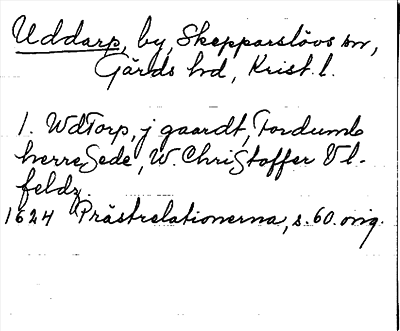 Uddarp, by, Skepparslövs sn,
Gärds hd, Krist. l.
1. WdTorp, j gaardt, Fordumb
herreSede, W. ChriStoffer Vl-
feldz.
1624 Prästrelationerna, s. 60. orig.